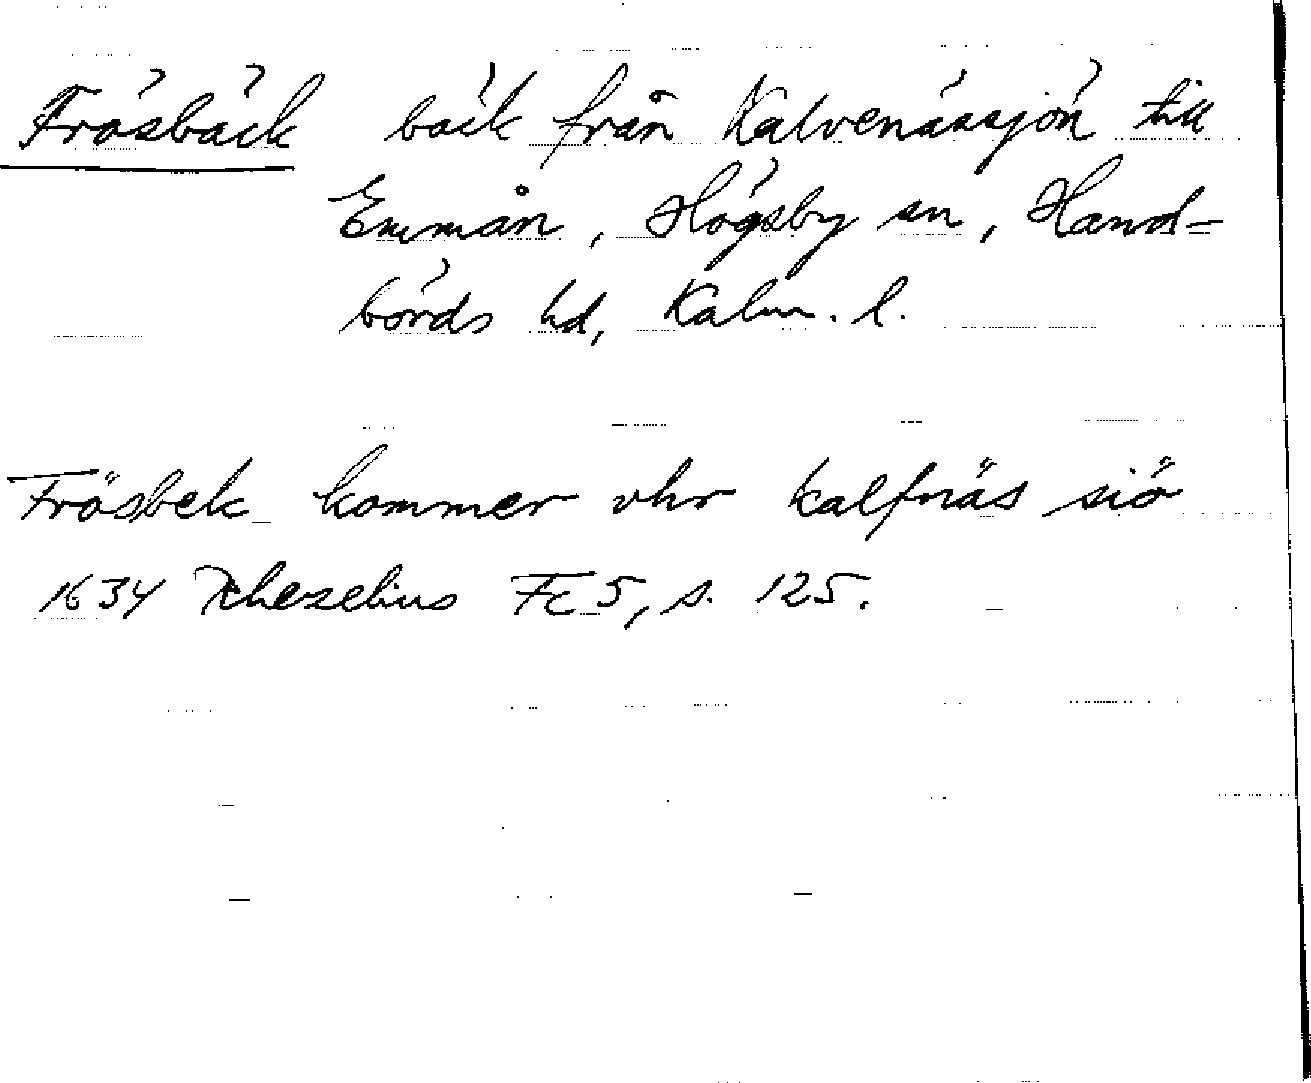 Frösbäck bäck från Kalvenässjön till
Emmån, Högsby sn, Hand-
börds hd, Kalm. l.
Frösbek kommer vhr kalfnäs siö
1634 Rhezelius Fc 5, s. 125.